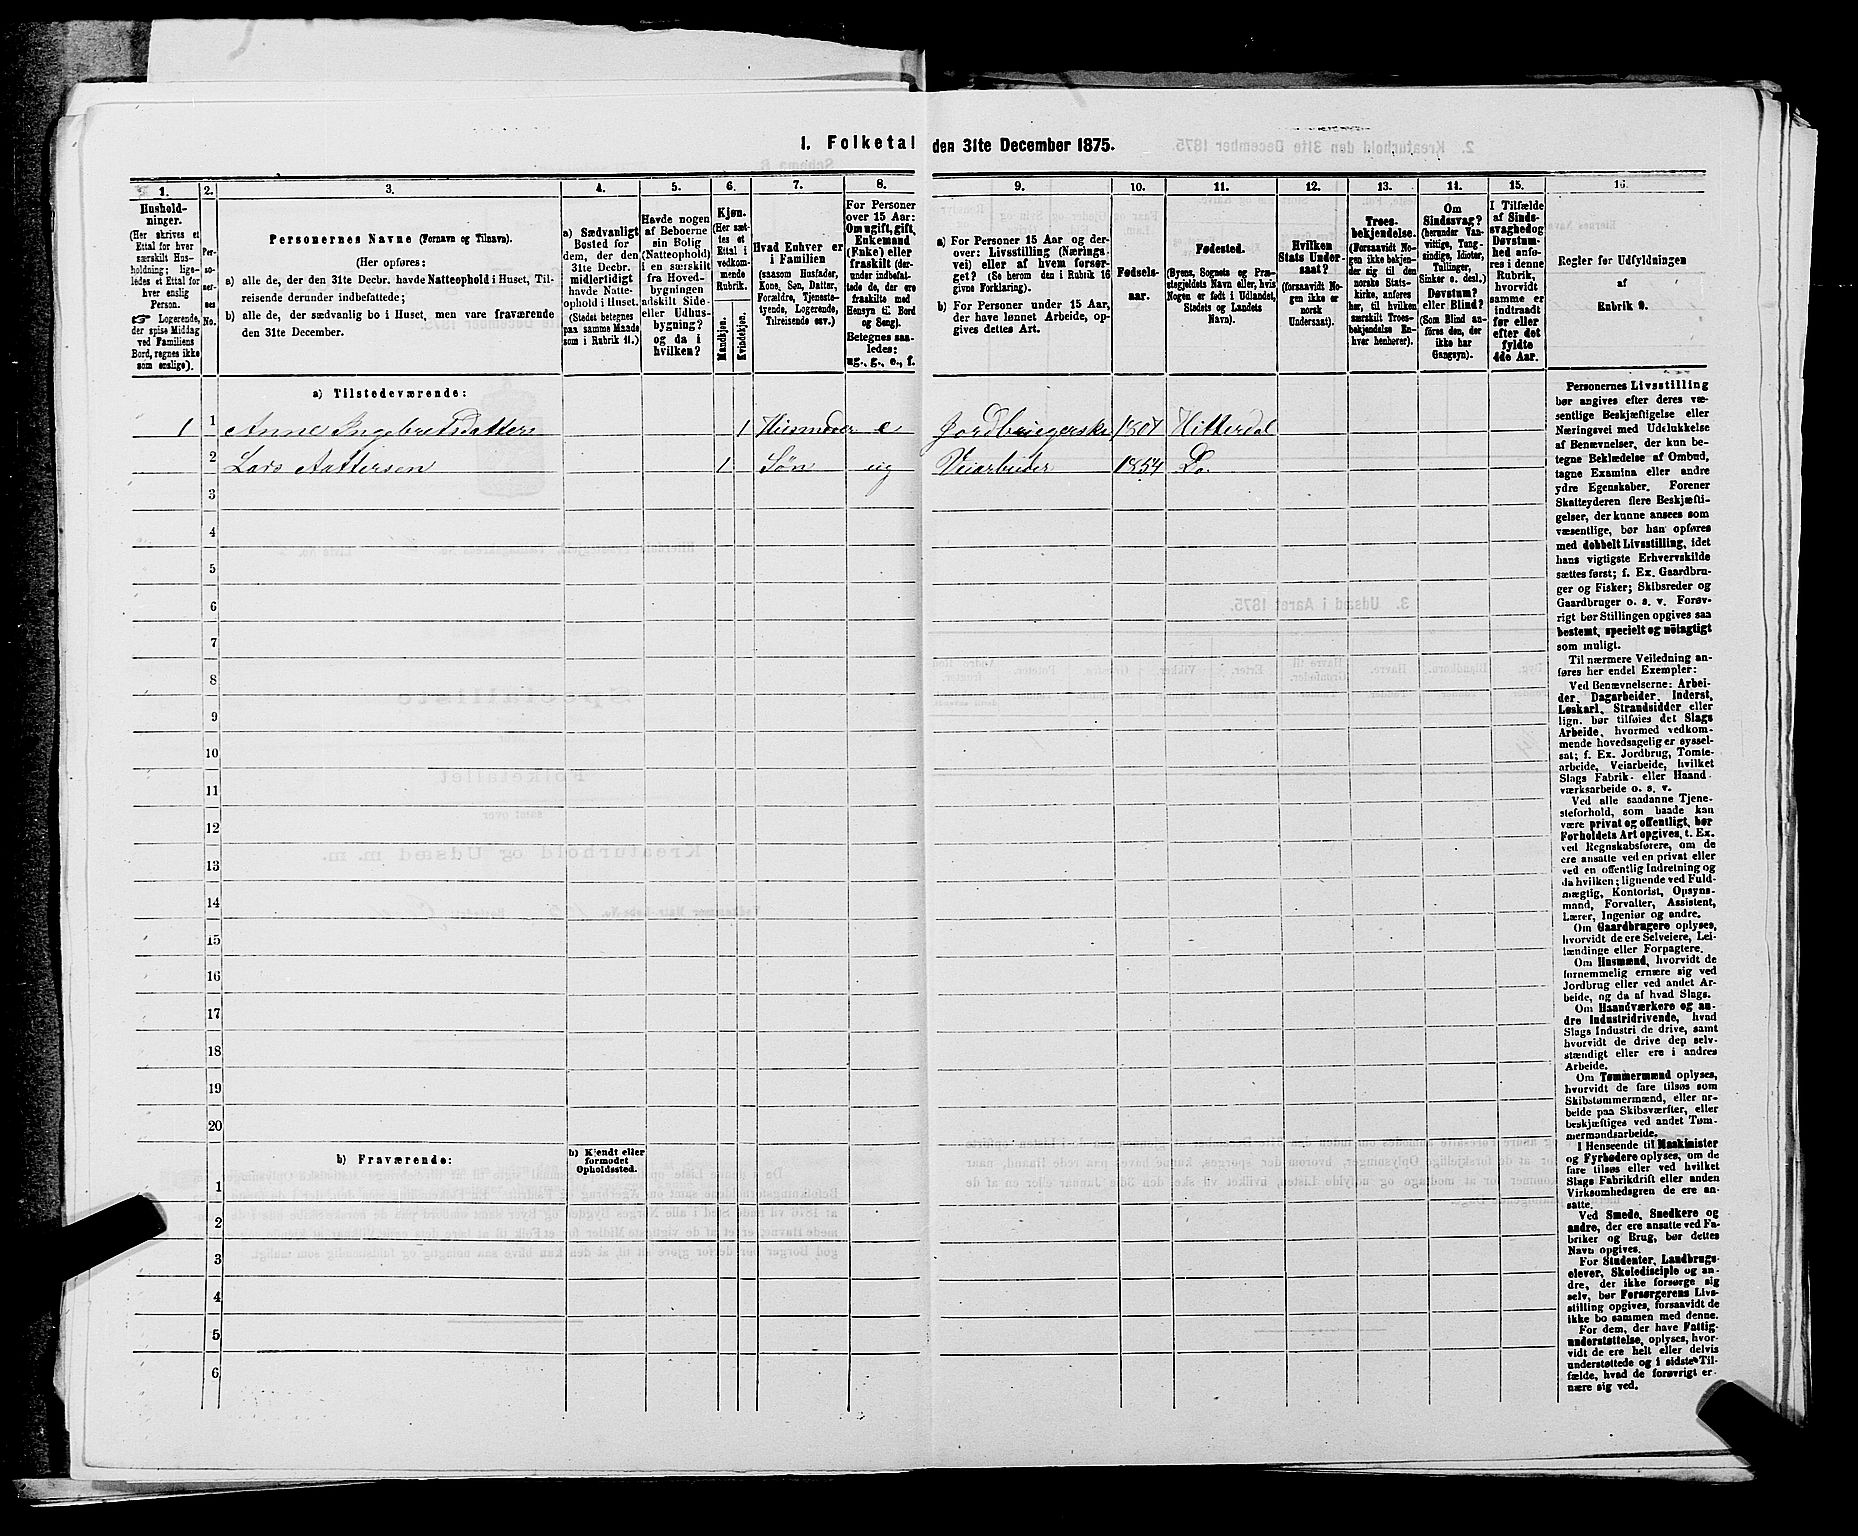 1. Folketal den 31te December 1875.
1. 2. 3. 4. 5. 6. 7. 8. 9. 10. 11. 12. 13. 14. 15. 16.
Hushold-
ninger.
(Her skrives et
Ettal for hver
særskilt Hus-
holdning; lige-
ledes et Ettal for
hver enslig
Person.
☞ Logerende,
der spise Middag
ved Familiens
Bord, regnes ikke
som enslige).
Per-
so-
ner-
nes
No.
Personernes Navne (Fornavn og Tilnavn).
(Her opføres:
a) alle de, der den 31te Decbr. havde Natteophold i Huset, Til-
reisende derunder indbefattede;
b) alle de, der sædvanlig bo i Huset, men vare fraværende
den 31te December.
a) Sædvanligt
Bosted for
dem, der den
31te Decbr.
midlertidigt
havde Natte-
ophold i Huset.
(Stedet betegnes
paa samme Maade
som i Rubrik 11.)
Havde nogen
af Beboerne
sin Bolig
(Natteophold)
i en særskilt
fra Hoved-
bygningen
adskilt Side-
eller Udhus-
bygning?
og da i
hvilken?
Kjøn.
(Her sæt-
tes et
Ettal i
vedkom-
mende
Rubrik.
Mandkjøn.
Kvindekjøn.
Hvad Enhver er
i Familien
(saasom Husfader,
Kone, Søn, Datter,
Forældre, Tjeneste-
tyende, Logerende,
Tilreisende osv.)
For Personer
over 15 Aar:
Om ugift, gift,
Enkemand
(Enke) eller
fraskilt (der-
under indbefat-
tede de, der ere
fraskilte med
Hensyn til Bord
og Seng).
Betegnes saa-
ledes:
ug., g., e., f.
a) For Personer 15 Aar og der-
over: Livsstilling (Nærings-
vei) eller af hvem forsør-
get? (Se herom den i Rubrik 16
givne Forklaring).
b) For Personer under 15 Aar,
der have lønnet Arbeide, op-
gives dettes Art.
Fødsels-
aar.
Fødested.
(Byens, Sognets og Præ-
stegjeldets Navn eller, hvis
Nogen er født i Udlandet,
Stedets og Landets
Navn).
Hvilken
Stats Under-
saat?
(forsaavidt No-
gen ikke er
norsk
Undersaat).
Troes-
bekjendelse.
(Forsaavidt No-
gen ikke bekjen-
der sig til den
norske Stats-
kirke, anføres
her, til hvilken
særskilt Troes-
bekjendelse En-
hver henhører).
Om
Sindssvag?
(herunder Van-
vittige, Tung-
sindige, Idioter,
Tullinger,
Sinker o. desl.)
Døvstum?
eller Blind?
(Som Blind an-
føres den, der
ikke har
Gangsyn).
I Tilfælde
af Sinds-
svaghed og
Døvstum-
hed anfø-
res i denne
Rubrik,
hvorvidt
samme er
indtraadt
før eller
efter det
fyldte
4de Aar.
Regler for Udfyldningen
af
Rubrik 9.
a) Tilstedeværende:
1 1 Anne Ingebretsdatter 1 Huusmoder e Jordbrugerske 1807 Hitterdal
2 Lars Aattersen 1 Søn ug Veiarbeider 1854 Do.
3
4
5
6
7
8
9
10
11
12
13
14
15
16
17
18
19
20
b) Fraværende:
b) Kjendt eller
formodet
Opholdssted.
1
2
3
4
5
6
Personernes Livsstilling
bør angives efter deres væ-
sentlige Beskjæftigelse eller
Næringsvei med Udelukkelse
af Benævnelser, der kun be-
tegne Beklædelse af Ombud,
tagne Examina eller andre
ydre Egenskaber. Forener
Skatteyderen flere Beskjæfti-
gelser, der kunne ansees som
væsentlige, bør han opføres
med dobbelt Livsstilling, idet
hans vigtigste Erhvervskilde
sættes først; f. Ex. Gaardbru-
ger og Fisker; Skibsreder og
Gaardbruger o. s. v. Forøv-
rigt bør Stillingen opgives saa
bestemt, specielt og nøiagtigt
som muligt.
Til nærmere Veiledning an-
føres her endel Exempler:
Ved Benævnelserne: Arbei-
der, Dagarbeider, Inderst,
Løskarl, Strandsidder eller
lign. bør tilføies det Slags
Arbeide, hvormed vedkom-
mende hovedsagelig er syssel-
sat; f. Ex. Jordbrug, Tomte-
arbeide, Veiarbeide, hvilket
Slags Fabrik- eller Haand-
værksarbeide o. s. v.
Ved alle saadanne Tjene-
steforhold, som baade kan
være privat og offentligt, bør
Forholdets Art opgives, t. Ex.
ved Regnskabsførere, om de
ere ansatte ved en privat eller
ved en offentlig Indretning og
da hvilken; lignende ved Fuld-
mægtig, Kontorist, Opsyns-
mand, Forvalter, Assistent,
Lærer, Ingeniør og andre.
Om Gaardbrugere oplyses,
hvorvidt de ere Selveiere, Lei-
lændinge eller Forpagtere.
Om Husmænd, hvorvidt de
fornemmelig ernære sig ved
Jordbrug eller ved andet Ar-
beide, og da af hvad Slags.
Om Haandværkere og an-
dre Industridrivende, hvad
Slags Industri de drive, samt
hvorvidt de drive den selv-
stændigt eller ere i andres
Arbeide.
Om Tømmermænd oplyses,
hvorvidt de fare tilsøs som
Skibstømmermænd, eller ar-
beide paa Skibsværfter, eller
beskjæftiges ved andet Tøm-
mermandsarbeide.
I Henseende til Maskinister
og Fyrbødere oplyses, om de
fare tilsøs eller ved hvilket
Slags Fabrikdrift eller anden
Virksomhedsgren de ere an-
satte.
Ved Smede, Snedkere og
andre, der ere ansatte ved Fa-
briker og Brug, bør dettes
Navn opgives.
For Studenter, Landbrugs-
elever, Skoledisciple og an-
dre, der ikke forsørge sig
selv, bør Forsørgerens Livs-
stilling opgives, forsaavidt de
ikke bo sammen med denne.
For dem, der have Fattig-
understøttelse, oplyses, hvor-
vidt de ere helt eller delvis
understøttede og i sidste Til-
fælde, hvad de forøvrigt er-
nære sig ved.